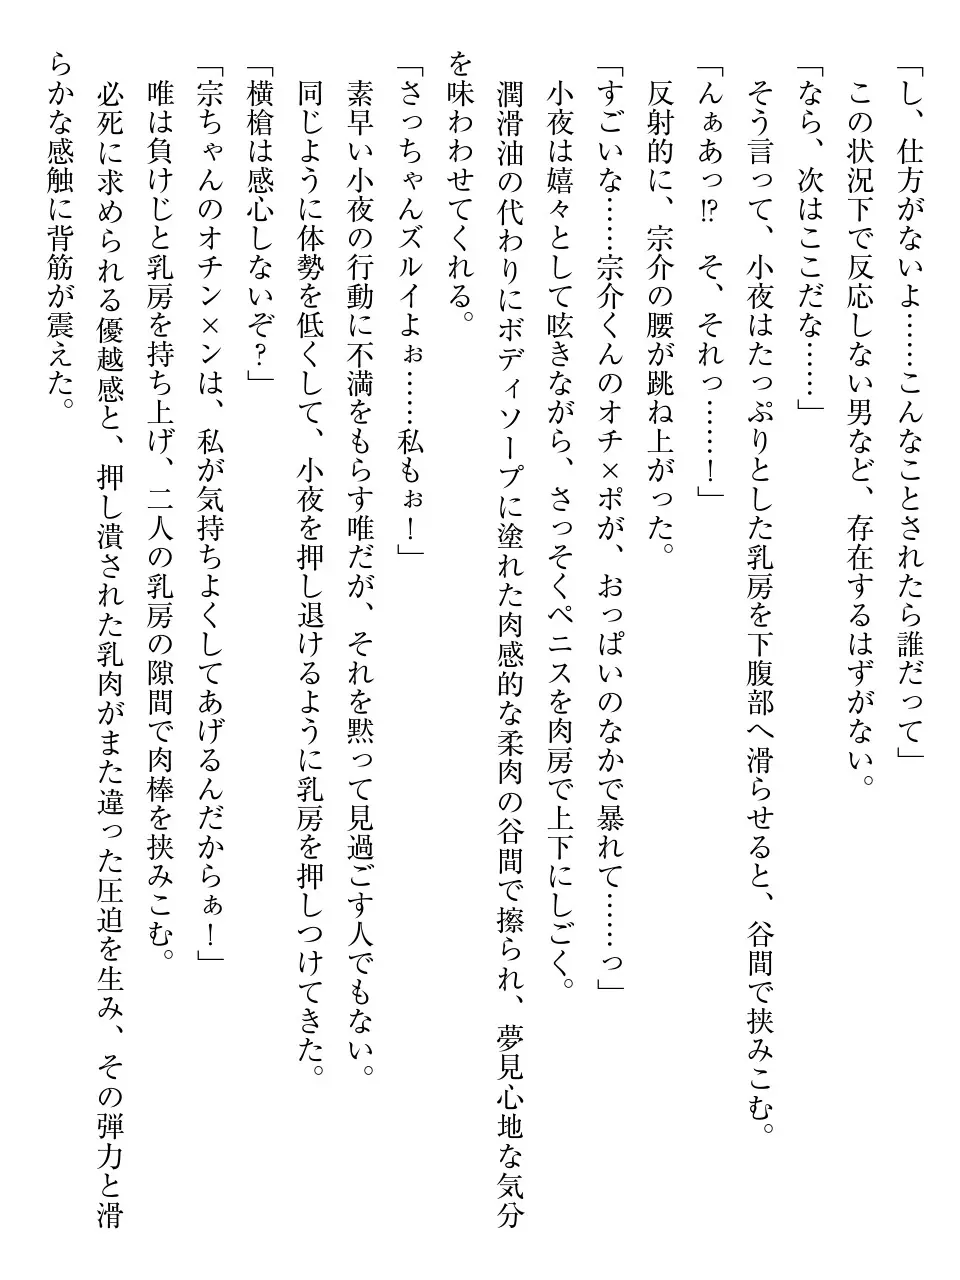 「し、仕方がないよ……こんなことされたら誰だって」
この状況下で反応しない男など、存在するはずがない。
「なら、次はここだな……」
そう言って、小夜はたっぷりとした乳房を下腹部へ滑らせると、谷間で挟みこむ。
「んぁあっ!?　そ、それっ……！」
反射的に、宗介の腰が跳ね上がった。
「すごいな……宗介くんのオチ×ポが、おっぱいのなかで暴れて……っ」
小夜は嬉々として呟きながら、さっそくペニスを肉房で上下にしごく。
潤滑油の代わりにボディソープに塗れた肉感的な柔肉の谷間で擦られ、夢見心地な気分
を味わわせてくれる。
「さっちゃんズルイよぉ……私もぉ！」
素早い小夜の行動に不満をもらす唯だが、それを黙って見過ごす人でもない。
同じように体勢を低くして、小夜を押し退けるように乳房を押しつけてきた。
「横槍は感心しないぞ？」
「宗ちゃんのオチン×ンは、私が気持ちよくしてあげるんだからぁ！」
唯は負けじと乳房を持ち上げ、二人の乳房の隙間で肉棒を挟みこむ。
必死に求められる優越感と、押し潰された乳肉がまた違った圧迫を生み、その弾力と滑
らかな感触に背筋が震えた。